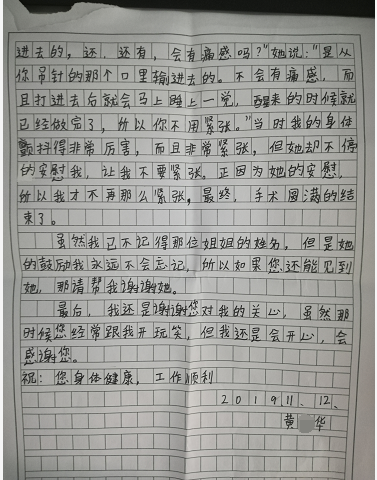 进去的，还．还有，会有痛感吗？”她说：“是从
你吊针的那个口里输进去的。不会有痛感，而
且打进去后就会马上睡上一觉，醒来的时候就
已经做完了，所以你不用紧张。”当时我的身体
颤抖得非常厉害，而且非常紧张，但她却不停
的安慰我，让我不要紧张。正因为她的安慰，
所以我才不再那么紧张，最终，手术圆满的结
束了。
虽然我已不记得那位姐姐的姓名，但是她
的鼓励我永远不会忘记，所以如果您还能见到
她，那请帮我谢谢她。
最后，我还是谢谢您对我的关心，虽然那
时候您经常跟我开玩笑，但我还是会开心，会
感谢您。
祝：您身体健康，工作顺利
2019 11．12．
黄 华